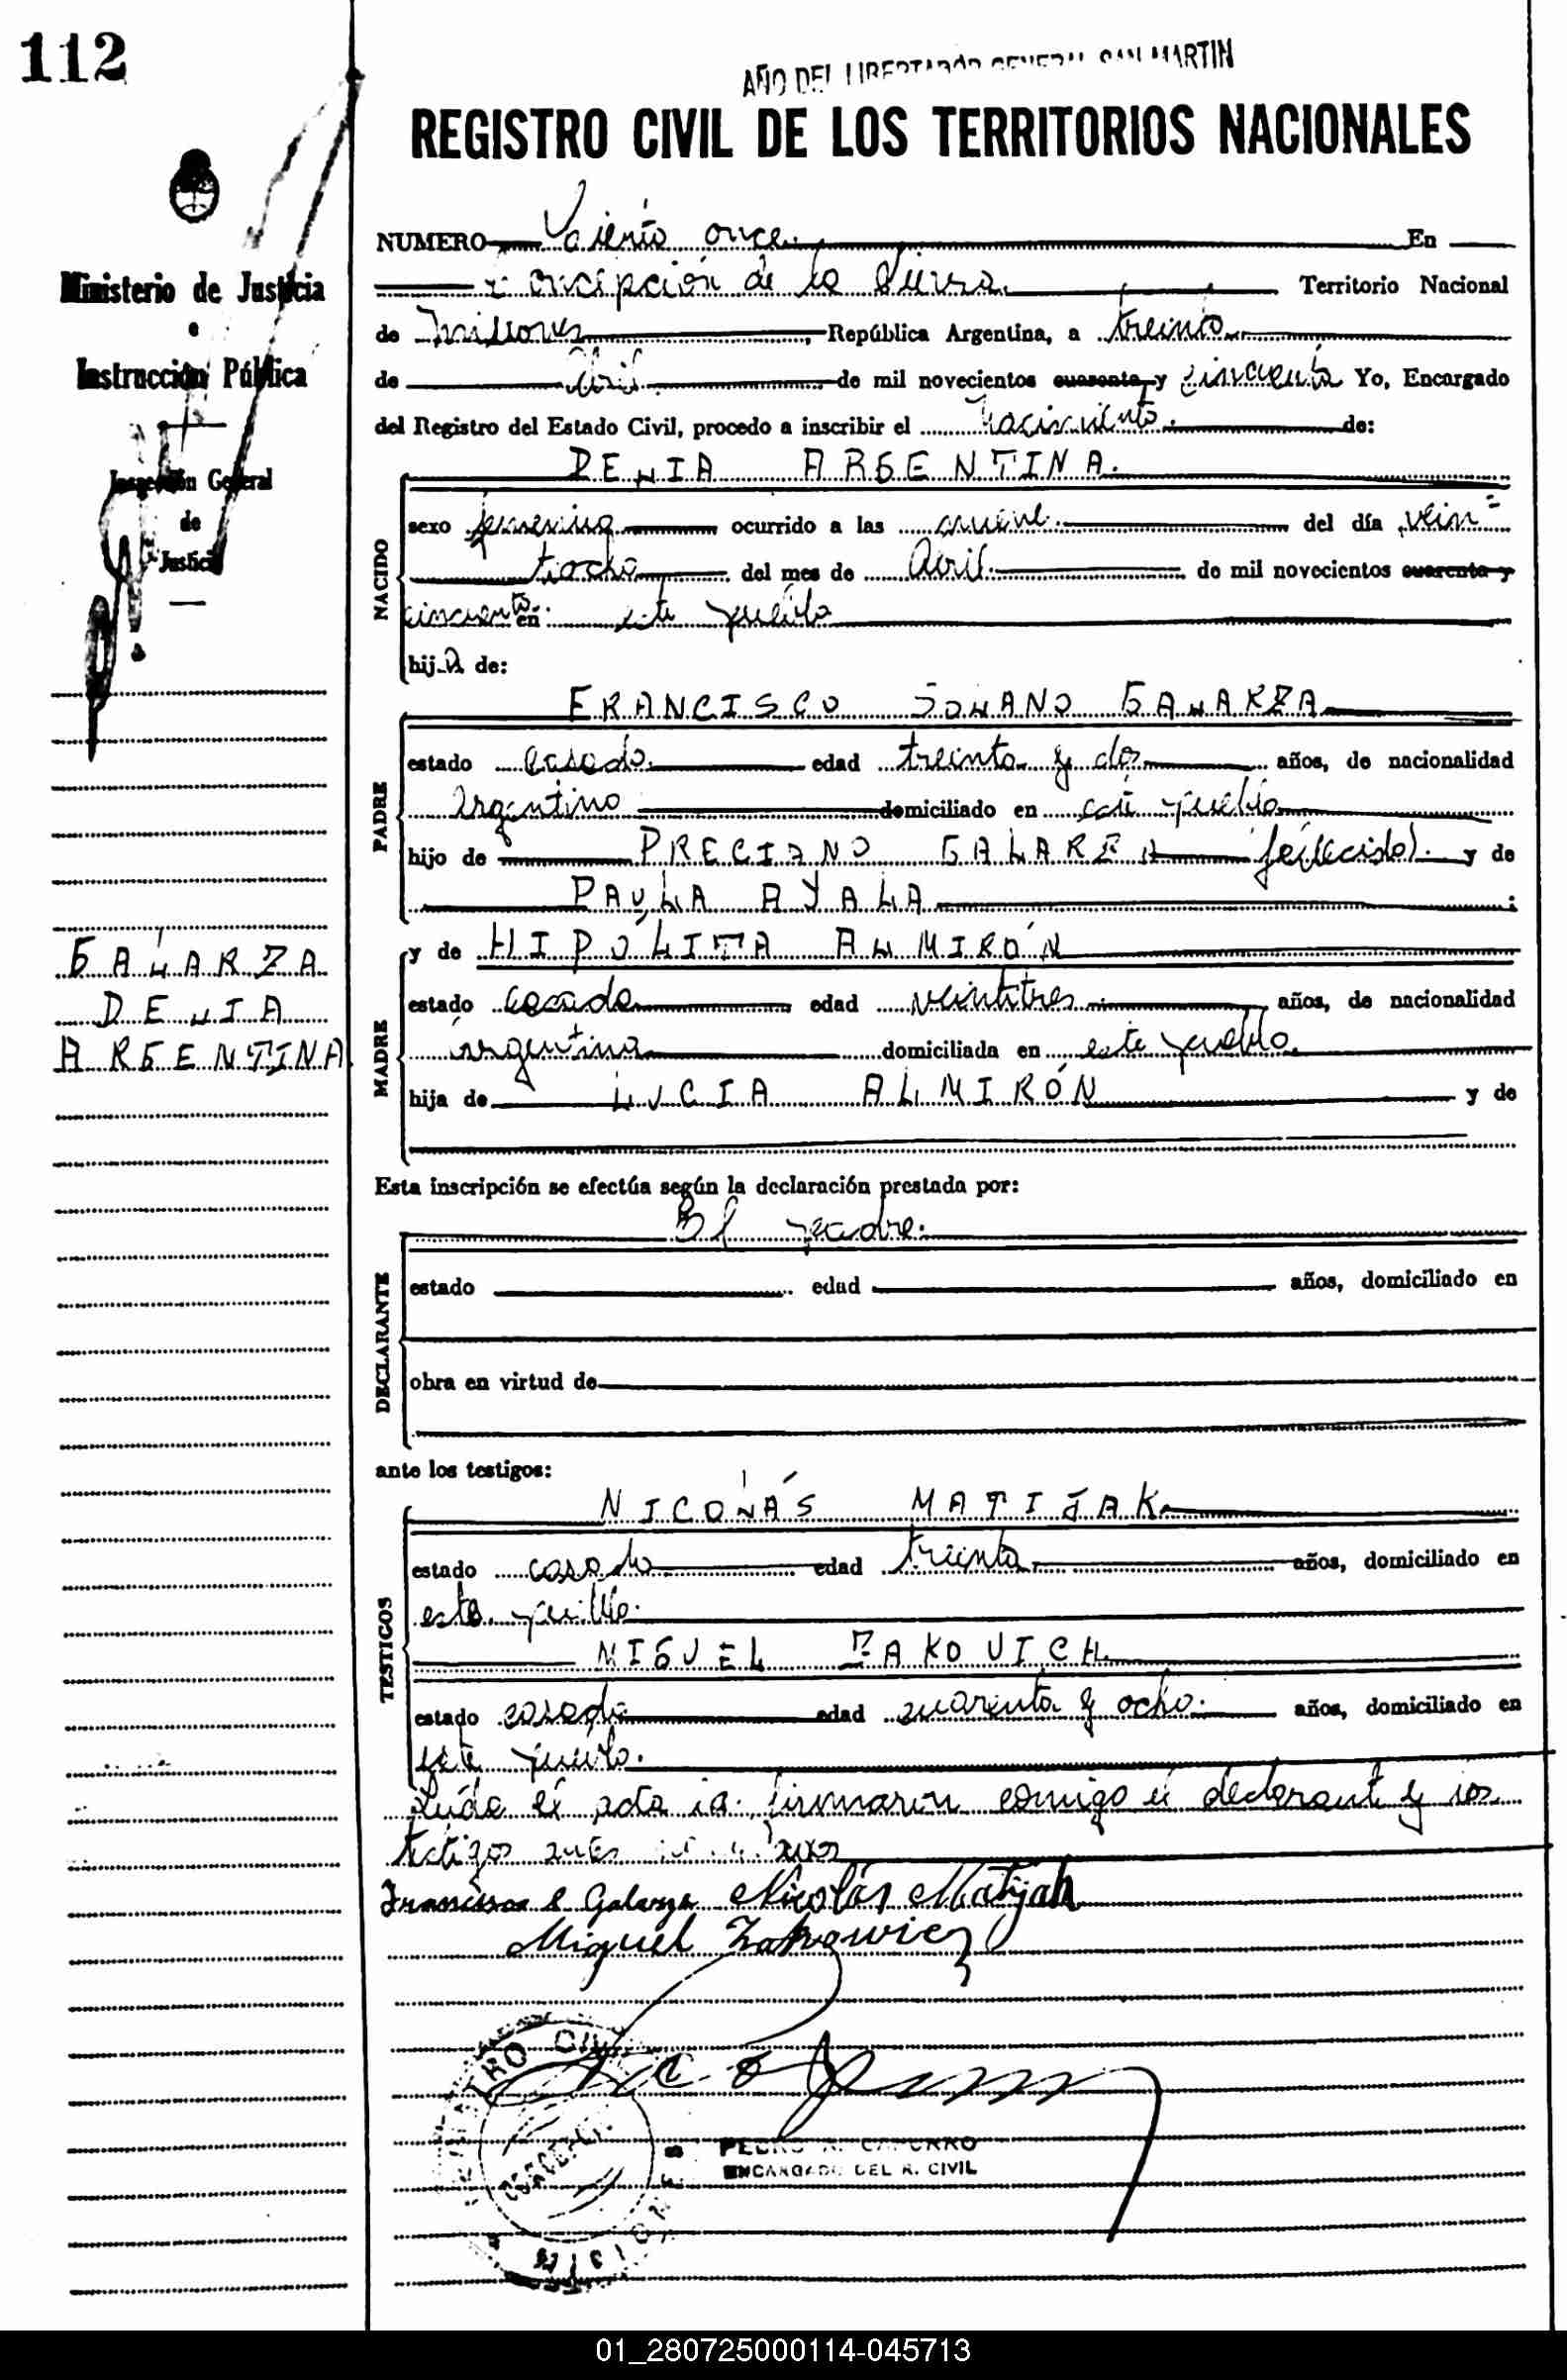 112
AÑO DEL LIBERTADOR GENERAL SAN MARTIN
REGISTRO CIVIL DE LOS TERRITORIOS NACIONALES
Ministerio de Justicia
e
Instrucción Pública
Inspección General
de
Justicia
GALARZA
DELIA
ARGENTINA
NUMERO Ciento once. En
Concepción de la Sierra Territorio Nacional
de Misiones, República Argentina, a treinta
de Abril de mil novecientos cuarenta y cincuenta Yo, Encargado
del Registro del Estado Civil, procedo a inscribir el nacimiento. de:
NACIDO
DELIA ARGENTINA.
sexo femenino ocurrido a las nueve. del día vein=
tiocho del mes de Abril. de mil novecientos cuarenta y
cincuenta. en este pueblo
hija de:
PADRE
FRANCISCO SOLANO GALARZA
estado casado. edad treinta y dos años, de nacionalidad
argentino domiciliado en este pueblo
hijo de PRECIANO GALARZA fallecido). y de
PAULA AYALA ;
MADRE
y de HIPÓLITA ALMIRÓN
estado casada edad veintitres años, de nacionalidad
argentina domiciliada en este pueblo.
hija de LUCIA ALMIRÓN y de
Esta inscripción se efectúa según la declaración prestada por:
DECLARANTE
El padre.
estado edad años, domiciliado en
obra en virtud de
ante los testigos:
TESTIGOS
NICOLÁS MATIJAK
estado casado edad treinta años, domiciliado en
este pueblo.
MIGUEL ZAKOVICH
estado casado edad cuarenta y ocho. años, domiciliado en
este pueblo.
Leída el acta la firmaron conmigo el declarante y los
testigos
Francisco S Galarza Nicolás Matijak
Miguel Zakowicz
REGISTRO CIVIL
MISIONES
PEDRO A. CAPURRO
ENCARGADO DEL R. CIVIL
01_280725000114-045713